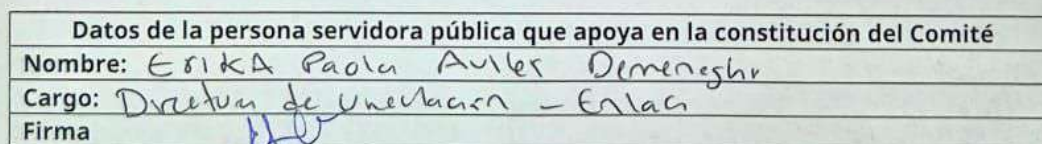 Datos de la persona servidora pública que apoya en la constitución del Comité
Nombre: Erika Paola Aviles Demeneghi
Cargo: Directora de Vinculación - Enlace
Firma